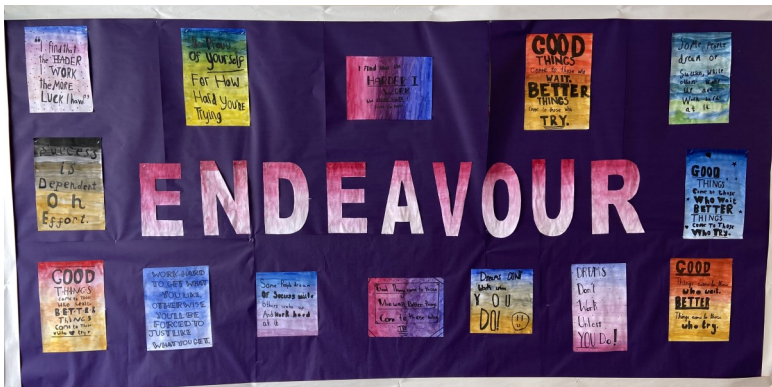 "I find that
the HADER
WORK
the MORE
LUCK I have"
Be Proud
OF yourself
For How
Hard You're
Trying
I find that the
HARDER I
WORK
GOOD
THINGS
Come to those who
WAIT.
BETTER
THINGS
Come to those who
TRY.
Some People
dream of
Success, while
others wake
Work hard
at it
Success
is
Dependent
On
Effort.
ENDEAVOUR
GOOD
THINGS
Come to those
Who Wait
BETTER
THINGS
Come To Those
Who TRY.
GOOD
THINGS
Come to Those
who wait
BETTER
THINGS
Come to Them
who try
WORK HARD
TO GET WHAT
YOU LIKE,
OTHERWISE
YOU'LL BE
FORCED TO
JUST LIKE
WHAT YOU GET.
Some People dream
Of Success while
Others wake
And Work hard
at it
Good Things Come to those
Who wait Better Things
Come to those who
Try
Dreams DON'T
Work unless
YOU
DO!
DREAMS
Don't
Work
Unless
YOU Do!
GOOD
Things come to those
who wait.
BETTER
Things come to those
who try.